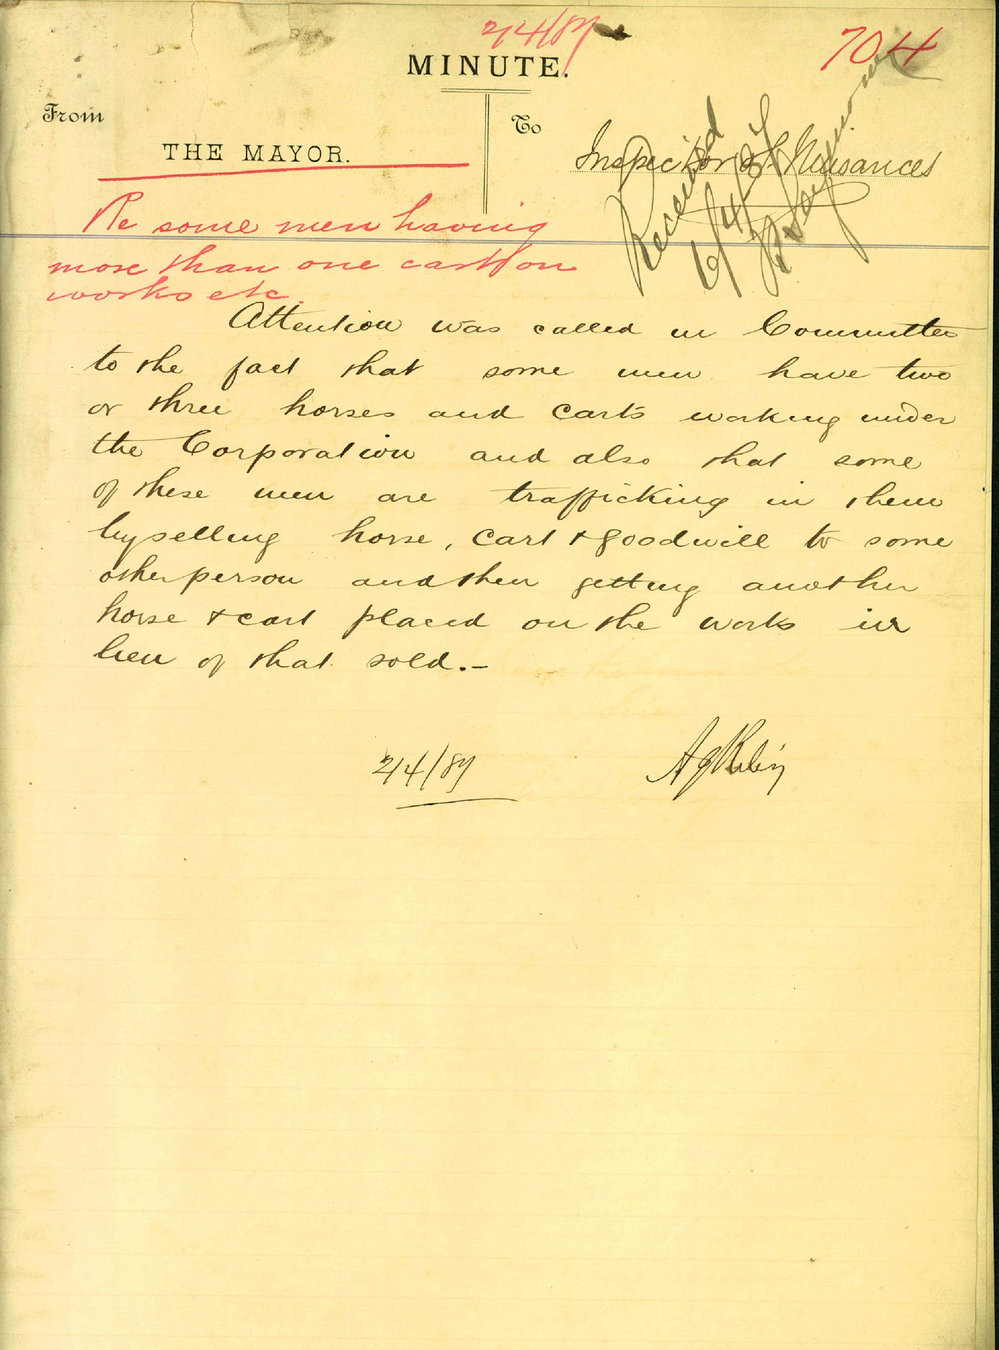 2/4/87
704
MINUTE.
From
To
THE MAYOR.
Inspector of Nuisances
Received
6/4/87
Re some men having
more than one cart on
works etc.
Attention was called in Committee
to the fact that some men have two
or three horses and carts working under
the Corporation and also that some
of these men are trafficking in them
by selling horse, cart & goodwill to some
other person and then getting another
horse & cart placed on the works in
lieu of that sold.—
2/4/87